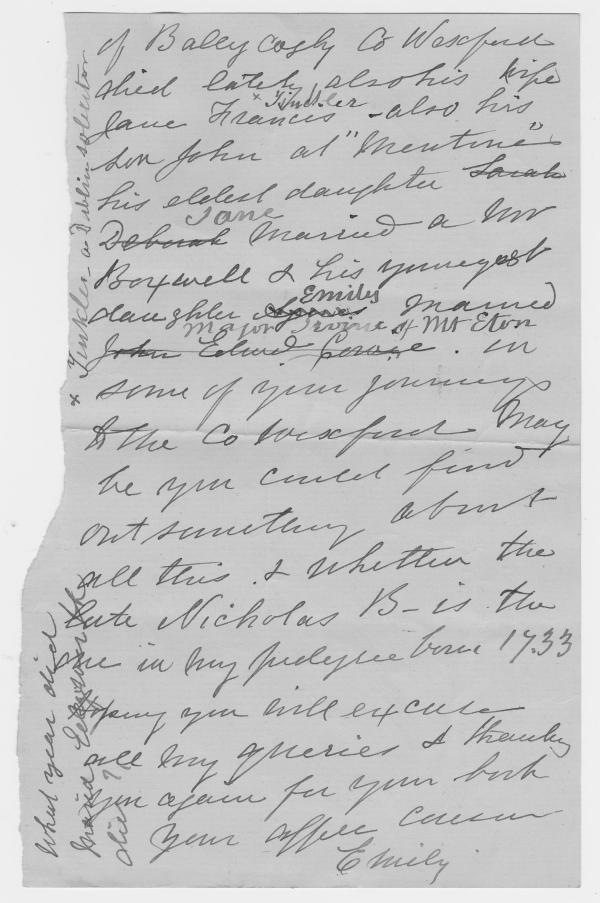 of Ballycogly Co Wexford
died lately also his wife
x Tinkler
Jane Frances - also his
son John at "Mentone"
his eldest daughter Sarah
Jane
Deborah Married a Mr
Boxwell & his youngest
Emily
daughter Agnes Married
Major Irvine of Mt Eton
John Edward George. in
some of your journeys
to the Co Wexford May
be you could find
out something about
all this. & whether the
late Nicholas B- is the
one in my pedigree born 1733
Hoping you will excuse
all my queries & thanking
you again for your book
your affec cousin
Emily
x Tinkler a Dublin solicitor
What year did
Maria Edgeworth
die?